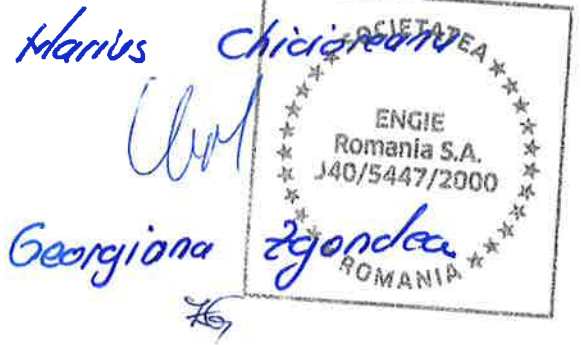 Marius Chicioreanu
SOCIETATEA
ENGIE
Romania S.A.
J40/5447/2000
Georgiana Zgondea
ROMANIA